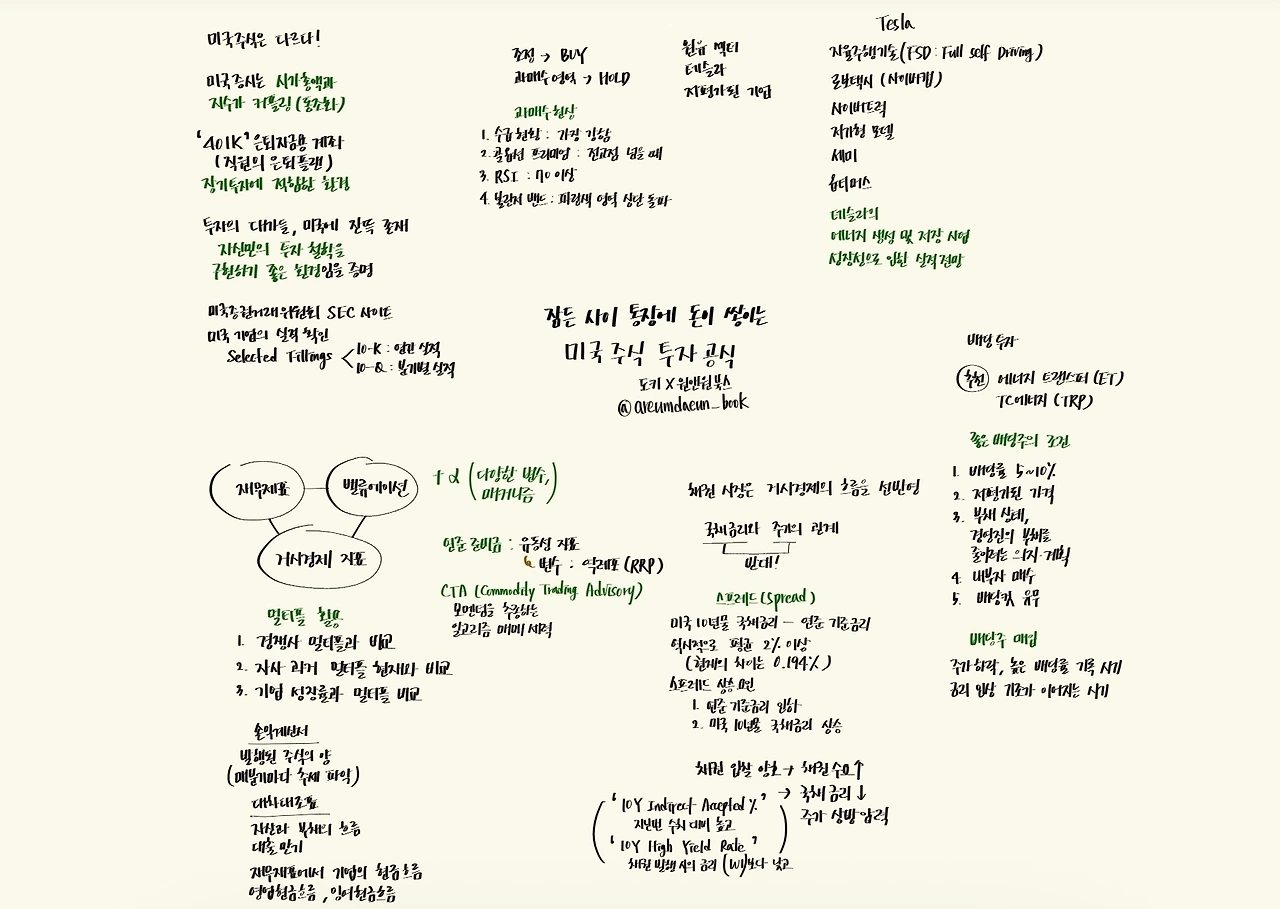 미국주식은 다르다!
미국증시는 시가총액과
지수가 커플링(동조화)
'401K' 은퇴자금용 계좌
(직원의 은퇴플랜)
장기투자에 적합한 환경
투자의 대가들, 미국에 잔뜩 존재
자신만의 투자 철학을
구현하기 좋은 환경임을 증명
미국증권거래위원회 SEC 사이트
미국 기업의 실적 확인
Selected Fillings
10-K : 연간 실적
10-Q : 분기별 실적
조정 → BUY
과매수영역 → HOLD
과매수현상
1. 수급현황 : 가장 강함
2. 콜옵션 프리미엄 : 전고점 넘을 때
3. RSI : 70 이상
4. 볼린저 밴드 : 파란색 영역 상단 돌파
원유 섹터
테슬라
저평가된 기업
Tesla
자율주행기술(FSD : Full self Driving)
로보택시 (사이버캡)
사이버트럭
저가형 모델
세미
옵티머스
테슬라의
에너지 생성 및 저장 사업
성장성으로 인한 실적전망
잠든 사이 통장에 돈이 쌓이는
미국주식 투자공식
도키 X 원앤원북스
@areumdaeun_book
재무제표
밸류에이션
거시경제 지표
+α (다양한 변수,
매커니즘)
연준 준비금 : 유동성 지표
변수 : 역레포(RRP)
CTA (Commodity Trading Advisory)
모멘텀을 추종하는
알고리즘 매매 세력
멀티플 활용
1. 경쟁사 멀티플과 비교
2. 자사 과거 멀티플 현재와 비교
3. 기업 성장률과 멀티플 비교
손익계산서
발행된 주식의 양
(매분기마다 추세 파악)
대차대조표
자산과 부채의 흐름
대출 만기
재무제표에서 기업의 현금흐름
영업현금흐름, 잉여현금흐름
채권 시장은 거시경제의 흐름을 선반영
국채금리와 주가의 관계
반대!
스프레드(Spread)
미국 10년물 국채금리 — 연준 기준금리
역사적으로 평균 2% 이상
(현재의 차이는 0.194%)
스프레드 상승요인
1. 연준 기준금리 인하
2. 미국 10년물 국채금리 상승
채권 입찰 양호 → 채권수요↑
→ 국채금리↓
주가 상방압력
( '10Y Indirect Accepted %'
지난번 수치 대비 높고
'10Y High Yield Rate'
채권 발행 시의 금리 (WI)보다 낮고 )
배당 투자
추천 에너지 트랜스퍼(ET)
TC에너지 (TRP)
좋은 배당주의 조건
1. 배당률 5~10%
2. 저평가된 가격
3. 부채 상태,
경영진의 부채를
줄이려는 의지·계획
4. 내부자 매수
5. 배당컷 유무
배당주 매입
주가하락, 높은 배당률 기록 시기
금리 인상 기조가 이어지는 시기